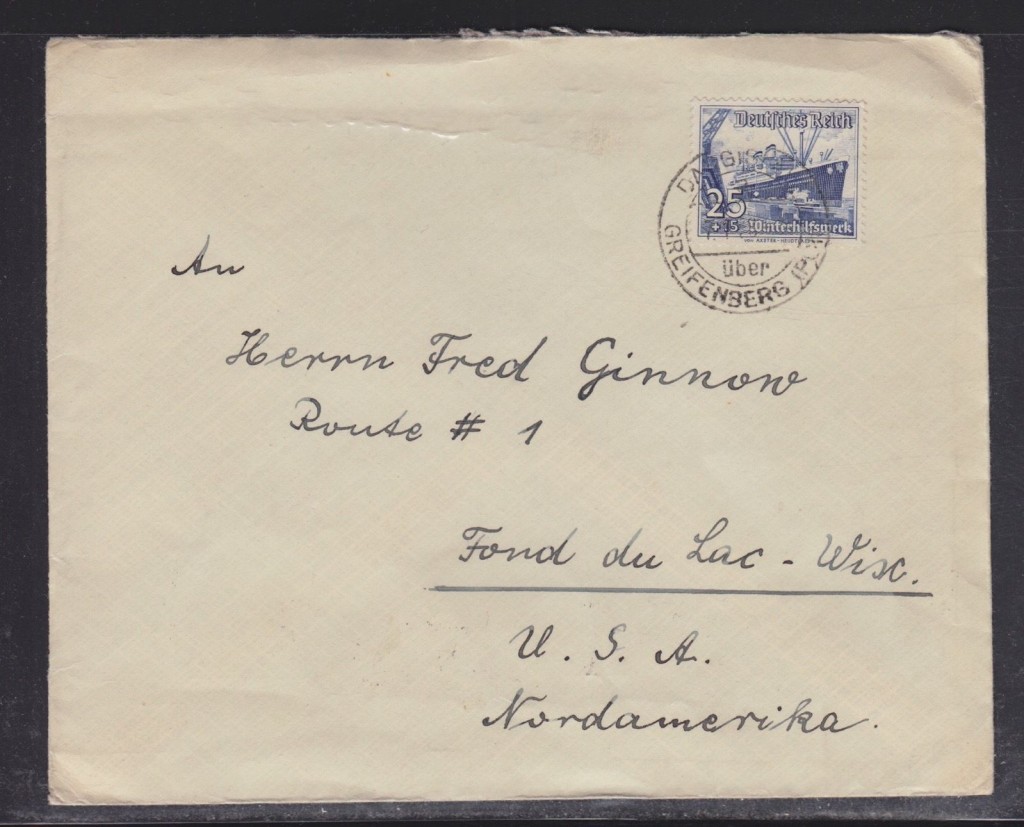 Deutsches Reich
25
+15 Winterhilfswerk
über
GREIFENBERG
An
Herrn Fred Ginnow
Route # 1
Fond du Lac - Wisc.
U. S. A.
Nordamerika.